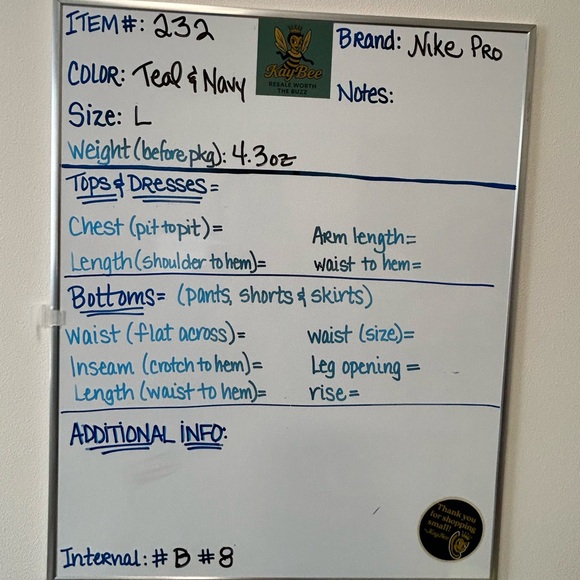 ITEM#: 232
COLOR: Teal & Navy
Size: L
Weight (before pkg): 4.3oz
KayBee
RESALE WORTH
THE BUZZ
Brand: Nike Pro
Notes:
Tops & Dresses=
Chest (pit to pit)=
Arm length=
Length (shoulder to hem)=
waist to hem=
Bottoms= (pants, shorts & skirts)
Waist (flat across)=
waist (size)=
Inseam (crotch to hem)=
Leg opening =
Length (waist to hem)=
rise=
ADDITIONAL INFO:
Thank you
for shopping
small!
~KayBee
Internal: # B # 8